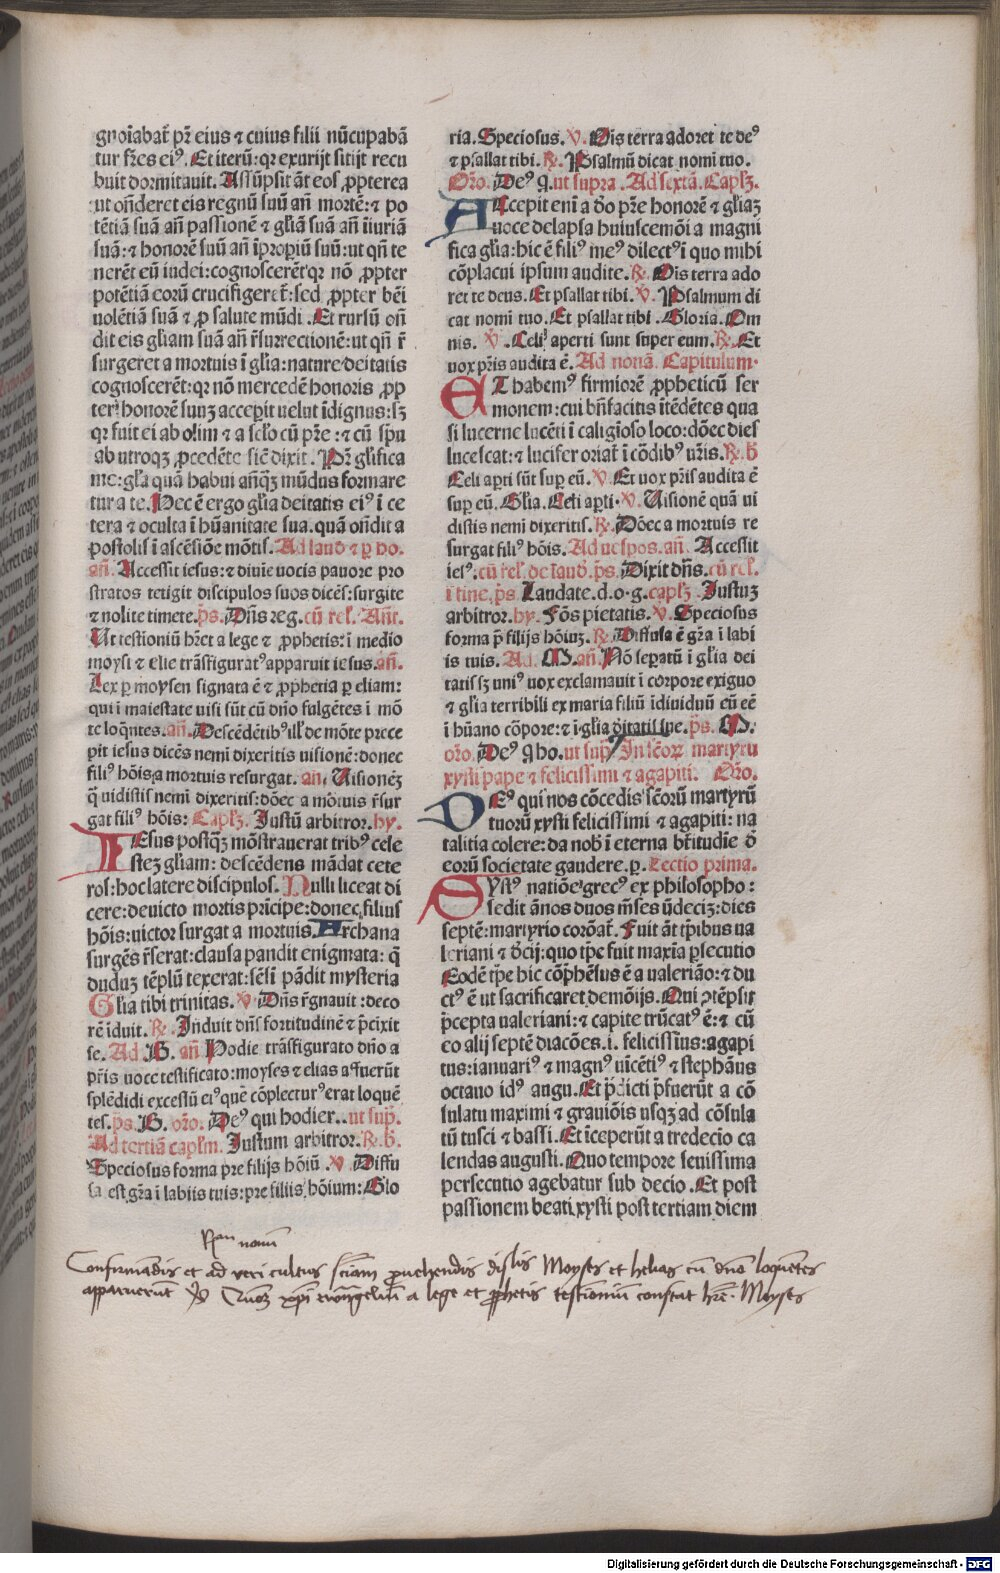 gnoĩabat̃ pr̃ eius ⁊ cuius filii nũcupabã
tur fr̃es eiꝰ. Et iterũ: qꝛ exurijt sitijt recu
buit dormitauit. Assũpsit ãt eos ꝓpterea
ut oñderet eis regnũ suũ añ mortẽ: ⁊ po
tẽtiã suã añ passionẽ ⁊ gl̃iã suã añ ĩiuriã
suã: ⁊ honorẽ suũ añ ĩpropiũ suũ: ut qñ te
nerẽt eũ iudei: cognoscerẽt qꝛ nõ ꝓpter
potẽtiã eorũ crucifigeret̃: sed ꝓpter bẽi
uolẽtiã suã ⁊ ꝓ salute mũdi. Et rursũ oñ
dit eis gl̃iam suã añ r̃surrectionẽ: ut qñ r̃
surgeret a mortuis ĩ gl̃ia: nature deitatis
cognoscerẽt: qꝛ nõ mercedẽ honoris ꝓp
ter honorẽ suuꝫ acceꝑit uelut ĩdignus: sꝫ
qꝛ fuit ei ab olim ⁊ a sclo cũ pr̃e: ⁊ cũ sp̃u
ab utroqꝫ ꝓcedẽte sic̃ dixit. Pr̃ gl̃ifica
me: gl̃a quã habui añqꝫ mũdus formare
tur a te. Hec ẽ ergo gl̃ia deitatis eiꝰ ĩ ce
tera ⁊ oculta ĩ hũanitate sua. quã oñdit a
postolis ĩ ascẽsiõe mõtis. Ad laud ⁊ ꝑ ho.
añ. Accessit iesus: ⁊ diuie uocis pauore pro
stratos tetigit discipulos suos dicẽs: surgite
⁊ nolite timete. ps. Dñs reg. cũ rel'. Añt.
Ut testioniũ hr̃et a lege ⁊ ꝓphetis: ĩ medio
moysi ⁊ elie trãsfiguratꝰ apparuit iesus. añ.
Lex ꝑ moysen signata ẽ ⁊ ꝓphetia ꝑ eliam:
qui ĩ maiestate uisi sũt cũ dño fulgẽtes ĩ mõ
te loq̃ntes. añ. Descẽdẽtibꝰ ill' de mõte prece
pit iesus dicẽs nemĩ dixeritis uisionẽ: donec
filiꝰ hõis a mortuis resurgat. añ. Uisionẽꝫ
q̃ uidistis nemĩ dixeritis: dõec a mortuis r̃sur
gat filiꝰ hõis: Capl'ꝫ. Justũ arbitror. hy.
IEsus postq̃ꝫ mõstrauerat tribꝰ cele
steꝫ gl̃iam: descẽdens mãdat cete
ros: hoc latere discipulos. Nulli liceat di
cere: deuicto mortis prĩcipe: donec filius
hõis: uictor surgat a mortuis. Archana
surgẽs r̃serat: clausa pandit enigmata: q̃
duduꝫ tẽplũ texerat: sẽsĩ pãdit mysteria
Gl̃ia tibi trinitas. ℣. Dñs r̃gnauit: deco
rẽ iduit. ℞. Jnduit dñs fortitudinẽ ⁊ p̃cixit
se. Ad. B. añ Hodie trãsfigurato dño a
pr̃is uoce testificato: moyses ⁊ elias affuerũt
splẽdidi excessũ eiꝰ quẽ cõplecturꝰ erat loquẽ
tes. ps. B. oro. Deꝰ qui hodier.. ut sup̃.
Ad tertiã capl'm. Justum arbitror. ℞. b.
Speciosus forma pre filijs hõiũ. ℣. Diffu
sa est gr̃a ĩ labiis tuis: pre filiis hõium: Glo
ria. Speciosus. ℣. Ois terra adoret te deꝰ
⁊ psallat tibi. ℞. Psalmũ dicat nomĩ tuo.
Oro. Deꝰ q. ut supra. Ad sextã. Capl'ꝫ.
ACcepit enĩ a do pr̃e honorẽ ⁊ gl̃iaꝫ
uoce delapsa huiuscemõi a magni
fica gl̃ia: hic ẽ filiꝰ meꝰ dilectꝰ ĩ quo mihi
cõplacui ipsum audite. ℞. Ois terra ado
ret te deus. Et psallat tibi. ℣. Psalmum di
cat nomĩ tuo. Et psallat tibi. Gloria. Om
nis. ℣. Celi aperti sunt super eum. ℞. Et
uox pr̃is audita ẽ. Ad nonã. Capitulum.
ET habemꝰ firmiorẽ ꝓpheticũ ser
monem: cui bñfacitis ĩtẽdẽtes qua
si lucerne lucẽti ĩ caligĩoso loco: dõec dies
lucescat: ⁊ lucifer oriat̃ ĩ cõdibꝰ ur̃is. ℞. b
Celi aꝑti sũt suꝑ eũ. ℣. Et uox pr̃is audita ẽ
suꝑ eũ. Gl̃ia. Celi aꝑti. ℣. Uisionẽ quã ui
distis nemĩ dixeritis. ℞. Dõec a mortuis re
surgat filiꝰ hõis. Ad uespos. añ. Accessit
iesꝰ. cũ rel'. de laud. ps. Dixit dñs. cũ rel'.
ĩ fine. ps. Laudate. d. o. g. capl'ꝫ Justuꝫ
arbitror. hy. Fõs pietatis. ℣. Speciosus
forma p̃ filijs hõiuꝫ. ℞. Diffusa ẽ gr̃a ĩ labi
is tuis. Ad. M. añ. Nõ seꝑatũ ĩ gl̃ia dei
tatis sꝫ uniꝰ uox exclamauit ĩ corpore exiguo
⁊ gl̃ia terribili ex maria filiũ ĩdiuiduũ eũ eẽ
ĩ hũano cõpore: ⁊ ĩ gl̃ia ditatis sue. ps. M.
oro. Deꝰ q ho. ut sup̃. In scoꝝ martyru
xysti pape ⁊ felicissimi ⁊ agapiti. Oro.
DEꝰ qui nos cõcedis scorũ martyrũ
tuorũ xysti felicissimi ⁊ agapiti: na
talitia colere: da nob ĩ eterna bt̃itudie ď
eorũ societate gaudere. ꝑ. Lectio prima.
SYstꝰ natiõe grecꝰ ex philosopho:
sedit ãnos duos mẽses ũdeciꝫ: dies
septẽ: martyrio corõat̃. Fuit ãt tp̃ibus ua
leriani ⁊ dcij: quo tp̃e fuit maxĩa ꝑsecutio
Eodẽ tp̃e hic cõp̃hẽsus ẽ a ualerião: ⁊ du
ctꝰ ẽ ut sacrificaret demõijs. Qui ↄtẽpsit
p̃cepta ualeriani: ⁊ capite trũcatꝰ ẽ: ⁊ cũ
eo alij septẽ diacões. i. felicissimus: agapi
tus: ianuariꝰ ⁊ magnꝰ uicẽtiꝰ ⁊ stephãus
octauo idꝰ angu. Et p̃dicti p̃fuerũt a cõ
sulatu maximi ⁊ grauiõis usqꝫ ad cõsula
tũ tusci ⁊ bassi. Et ĩceperũt a tredecio ca
lendas augusti. Quo tempore seuissima
persecutio agebatur sub decio. Et post
passionem beati xysti post tertiam diem
nonũ
Confirmãdis et ad veri cultus sciam prouehendis disclis Moyses et helias cũ dno loquentes
apparuerũt ℣ Quoꝫ xp̃i euõgeliũ a lege et ꝓphetis testimoniũ constat hr̃e. Moyses
Digitalisierung gefördert durch die Deutsche Forschungsgemeinschaft - DFG